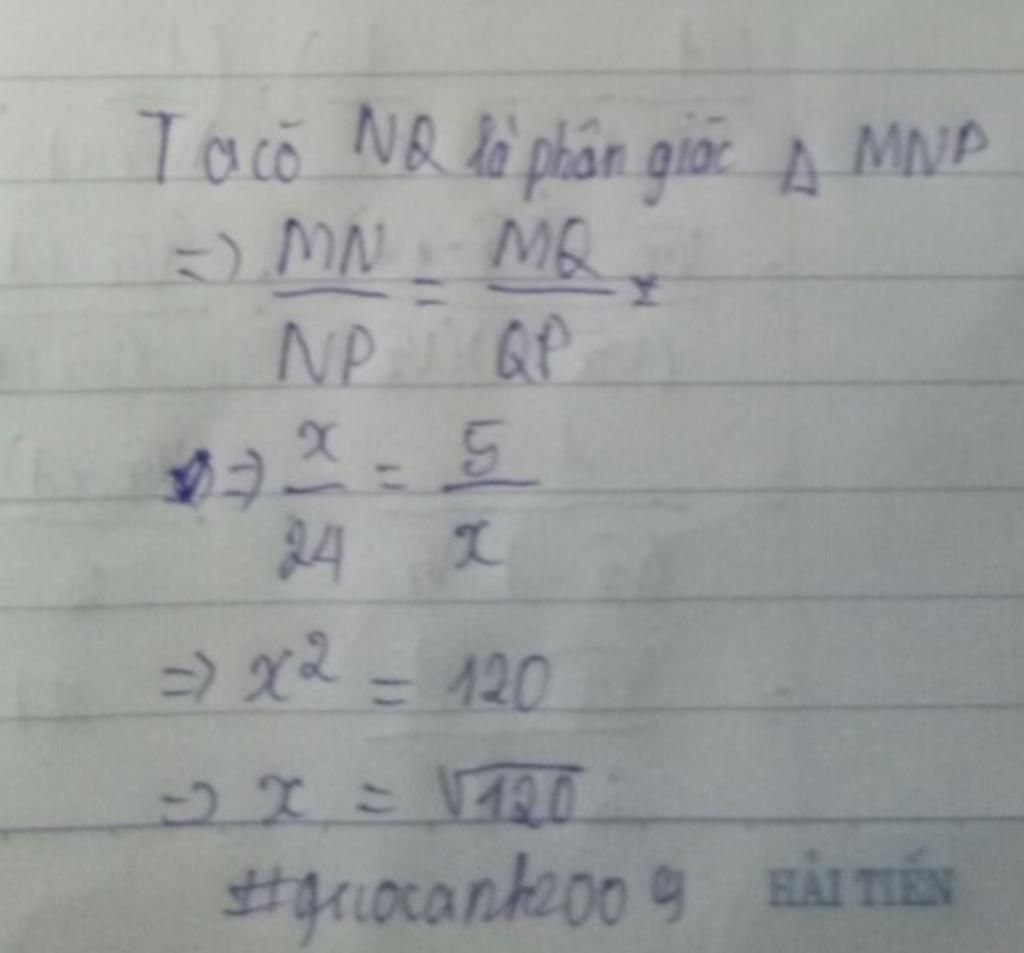 Ta có NQ là phân giác Δ MNP
=> MN/NP = MQ/QP
=> x/24 = 5/x
=> x² = 120
=> x = √120
#quocanh2009 HẢI TIẾN